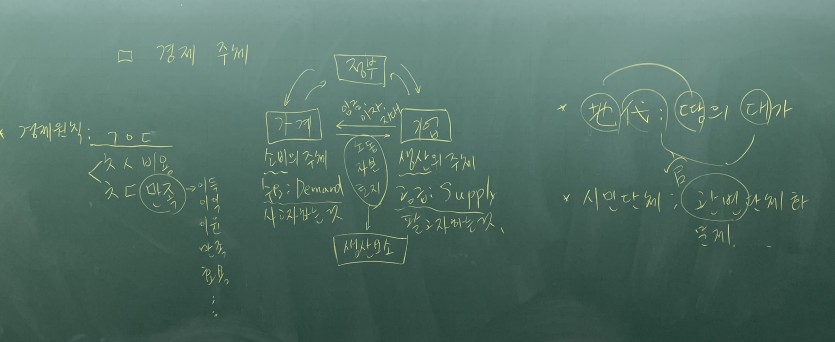 □ 경제 주체
* 경제원칙: ㄱㅇㄷ
ㅊㅅ 비용
ㅊㄷ 만족 → 이득
이익
이윤
만족,
효용,
정부
임금, 이자, 지대
가계
기업
소비의 주체
수요: Demand
사고자 하는 것
노동
자본
토지
생산요소
생산의 주체
공급: Supply
팔고자 하는 것.
* 地代: 땅의 대가
* 시민단체:
단체